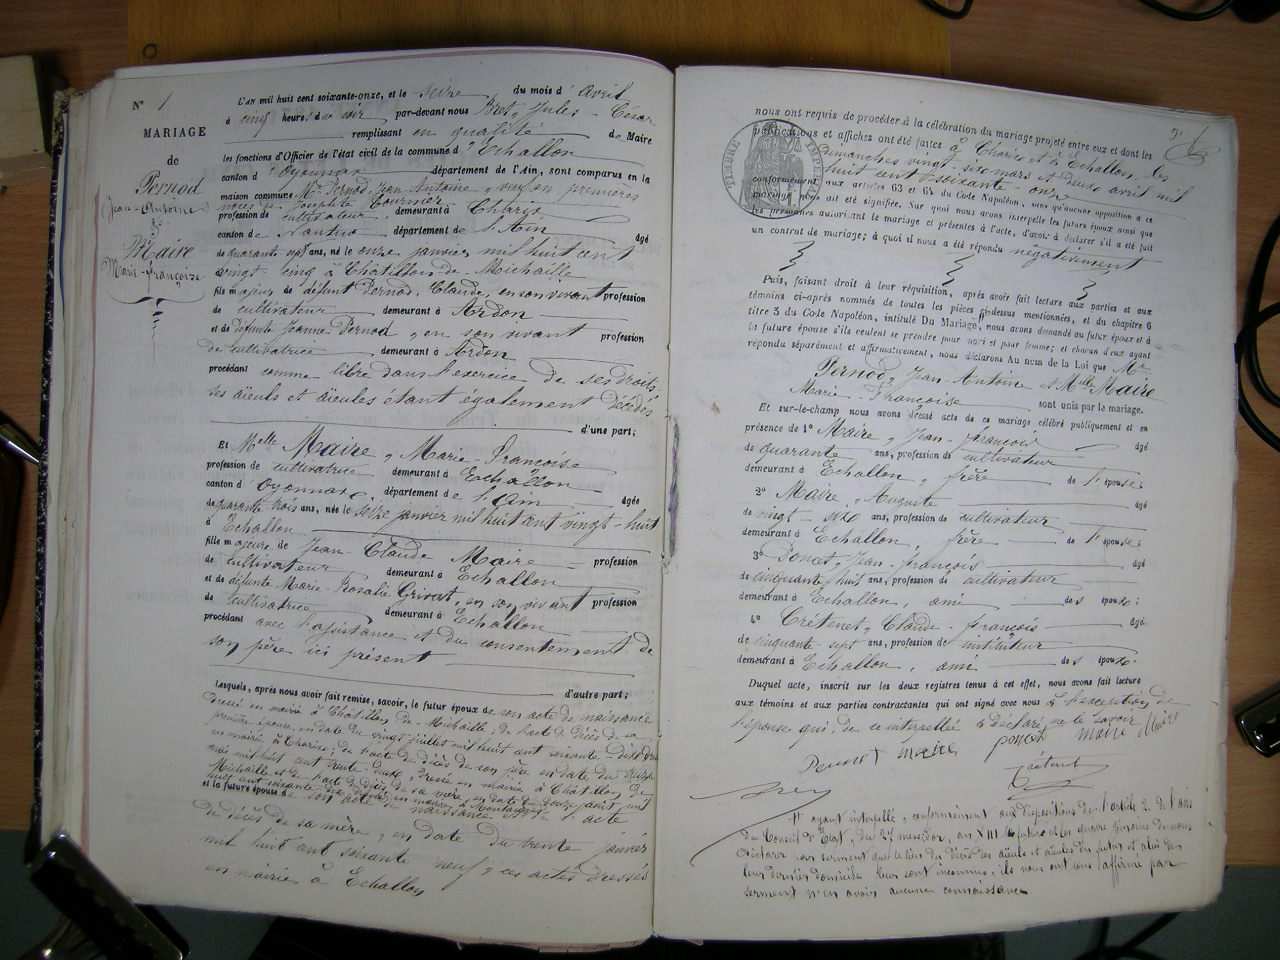 N° 1
MARIAGE
de
Pernod
Jean-Antoine
&
Maire
Marie-Françoise
L'AN mil huit cent soixante-onze, et le seize du mois d'avril
à cinq heures du soir par-devant nous Bret, Jules-César
remplissant en qualité de Maire
les fonctions d'Officier de l'état civil de la commune d'Echallon
canton d'Oyonnax département de l'Ain, sont comparus en la
maison commune Mr Pernod, Jean Antoine, veuf en premières
noces de Josephte Tournier
profession de cultivateur demeurant à Charix
canton de Nantua département de l'Ain âgé
de quarante six ans, né le onze janvier mil huit cent
vingt-cinq à Châtillon-de-Michaille
fils majeur de défunt Pernod, Claude, en son vivant profession
de cultivateur demeurant à Ardon
et de défunte Jeanne Pernod, en son vivant profession
de cultivatrice demeurant à Ardon
procédant comme libre dans l'exercice de ses droits,
ses aïeuls et aïeules étant également décédés
d'une part;
Et Melle Maire, Marie-Françoise
profession de cultivatrice demeurant à Echallon
canton d'Oyonnax, département de l'Ain âgée
de quarante trois ans, née le seize janvier mil huit cent vingt-huit
à Echallon
fille majeure de Jean-Claude Maire profession
de cultivateur demeurant à Echallon
et de défunte Marie-Rosalie Grivat, en son vivant profession
de cultivatrice demeurant à Echallon
procédant avec l'assistance et du consentement de
son père ici présent
d'autre part;
Lesquels, après nous avoir fait remise, savoir, le futur époux de son acte de naissance
dressé en mairie à Châtillon de Michaille, de l'acte de décès de sa
première épouse, en date du vingt juillet mil huit cent soixante-dix dressé
en mairie à Charix; de l'acte de décès de son père en date du
mai mil huit cent trente deux, dressé en mairie à Châtillon de
Michaille et de l'acte de décès de sa mère, en date du douze août mil
huit cent soixante
et la future épouse de son acte de naissance et de l'acte
de décès de sa mère, en date du trente janvier
mil huit cent soixante neuf, ces actes dressés
en mairie à Echallon
2
nous ont requis de procéder à la célébration du mariage projeté entre eux et dont les
publications et affiches ont été faites à Charix et à Echallon, les
dimanches vingt-six mars et deux avril mil
huit cent soixante-onze
TIMBRE IMPERIAL
conformément aux articles 63 et 64 du Code Napoléon, sans qu'aucune opposition à ce
mariage nous ait été signifiée. Sur quoi nous avons interpellé les futurs époux ainsi que
les personnes autorisant le mariage et présentes à l'acte, d'avoir à déclarer s'il a été fait
un contrat de mariage; à quoi il nous a été répondu négativement
Puis, faisant droit à leur réquisition, après avoir fait lecture aux parties et aux
témoins ci-après nommés de toutes les pièces ci-dessus mentionnées, et du chapitre 6
titre 5 du Code Napoléon, intitulé Du Mariage, nous avons demandé au futur époux et à
la future épouse s'ils veulent se prendre pour mari et pour femme; et chacun d'eux ayant
répondu séparément et affirmativement, nous déclarons Au nom de la Loi que Mr
Pernod, Jean-Antoine et Melle Maire
Marie-Françoise sont unis par le mariage.
Et sur-le-champ nous avons dressé acte de ce mariage célébré publiquement et en
présence de 1° Maire, Jean-François âgé
de quarante ans, profession de cultivateur
demeurant à Echallon, frère de l'épouse;
2° Maire, Auguste âgé
de vingt-six ans, profession de cultivateur
demeurant à Echallon, frère de l'épouse;
3° Poncet, Jean-François âgé
de cinquante huit ans, profession de cultivateur
demeurant à Echallon, ami des époux;
4° Crétenet, Claude-François âgé
de cinquante-sept ans, profession de instituteur
demeurant à Echallon, ami des époux.
Duquel acte, inscrit sur les deux registres tenus à cet effet, nous avons fait lecture
aux témoins et aux parties contractantes qui ont signé avec nous à l'exception de
l'épouse qui, de ce interpellée a déclaré ne le savoir
Pernod Maire poncet maire
Crétenet
Bret
Et ayant interpellé, conformément aux dispositions de l'article 2 de l'avis
du Conseil d'Etat, du 27 messidor, an XIII
déclarer sous serment que le lieu du décès des aïeuls et aïeules du futur et celui des
leur dernier domicile leur sont inconnus, ils nous ont tous affirmé par
serment n'en avoir aucune connaissance